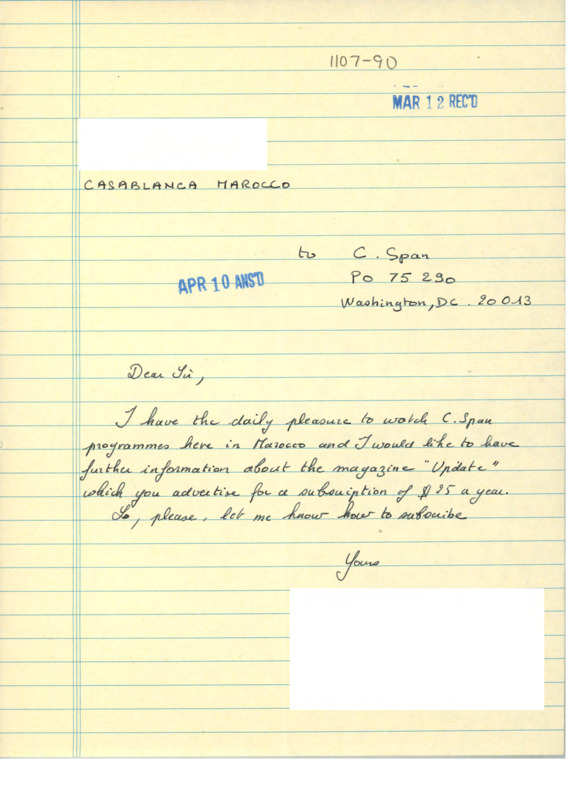 1107-90
MAR 12 REC'D
CASABLANCA MAROCCO
to C. Span
APR 10 ANS'D
PO 75 290
Washington, DC. 20013
Dear Sir,
I have the daily pleasure to watch C. Span
programmes here in Marocco and I would like to have
further information about the magazine "Update"
which you advertise for a subscription of $ 25 a year.
So, please, let me know how to subscribe
Yours